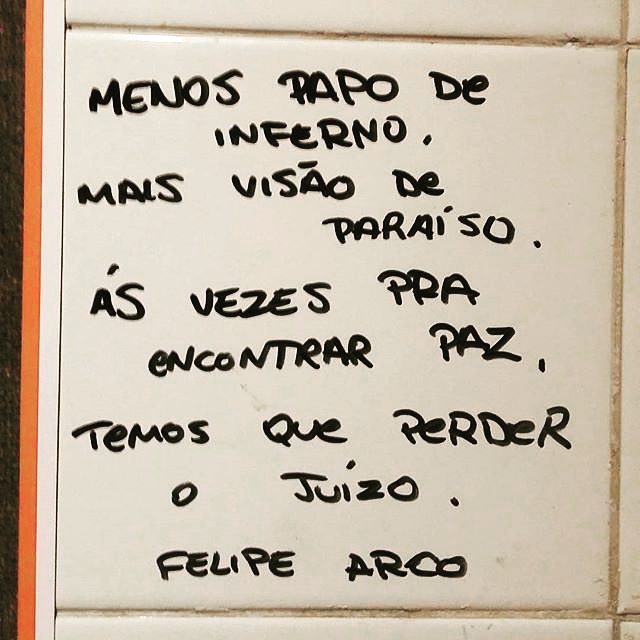 MENOS PAPO DE
INFERNO.
MAIS VISÃO DE
PARAÍSO.
ÁS VEZES PRA
ENCONTRAR PAZ,
TEMOS QUE PERDER
O JUÍZO.
FELIPE ARCO